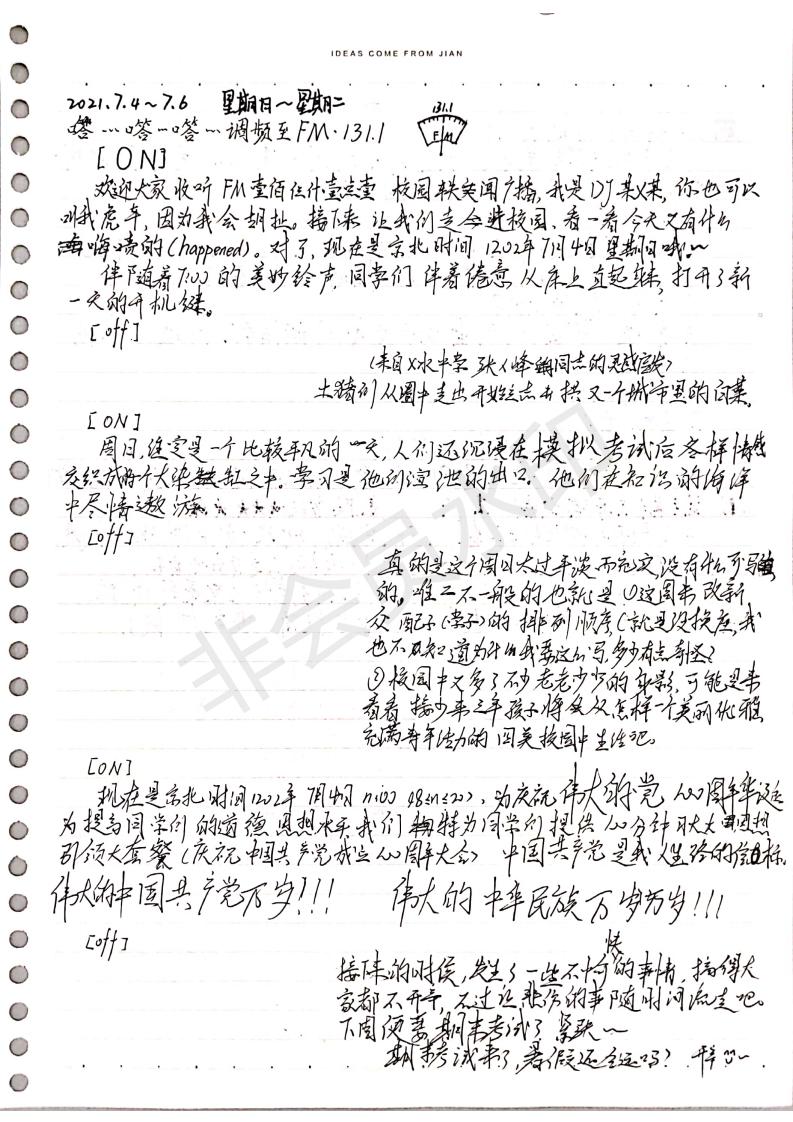 IDEAS COME FROM JIAN
2021.7.4~7.6 星期日~星期二
嗒…嗒…嗒…调频至FM·131.1
131.1
FM
[ON]
欢迎大家收听FM壹佰仨什壹点壹 校园轶实闻广播,我是DJ某X某,你也可以
叫我虎年,因为我会胡扯。接下来让我们走进校园,看一看今天又有什么
嗨喷的(happened)。对了,现在是京北时间1202年7月4日星期日哦~
伴随着7:00的美妙铃声,同学们伴着倦意从床上直起来,打开了新
一天的开机键。
[off]
(来自X水中学 张X峰同志的灵感启发)
土猪们从圈中走出开始立志去拱又一个城市里的白菜。
[ON]
周日,注定是一个比较平凡的一天,人们还沉浸在模拟考试后各样情感
交织成的个大染缸之中。学习是他们宣泄的出口。他们在知识的海洋
中尽情遨游……
[off]
真的是这个周日太过平淡而无文,没有什么可写
的。唯二不一般的也就是①这周末改新
众配子(学子)的排列顺序(就是没换座,我
也不知道为什么我要这么写,多少有点奇怪?
②校园中又多了不少老老少少的身影,可能是来
看看接下来三年孩子将会从怎样一个美丽优雅
充满青年活力的四美校园中生活吧。
[ON]
现在是京北时间1202年7月4日n:00(18≤n≤20),为庆祝伟大的党100周年华诞
为提高同学们的道德思想水平我们特为同学们提供100分钟思想
引领大套餐(庆祝中国共产党成立100周年大会) 中国共产党是我人生路的信标。
伟大的中国共产党万岁!!! 伟大的中华民族万岁万岁!!!
[off]
快
接下来的时候,发生了一些不愉的事情,搞得大
家都不开心,不过让悲伤的事随时间流走吧。
下周便要期末考试了 紧张~
期末考试来了,暑假还会远吗?
非会员水印